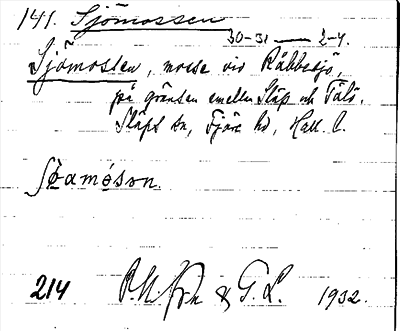 141. Sjömossen
30-31 — 2-4.
Sjömossen, mosse vid Råbbesjö,
på gränsen emellan Släp och Tölö.
Släps sn, Fjäre hd, Hall. l.
ʃø̀amòsən.
214 & G. L. 1932.